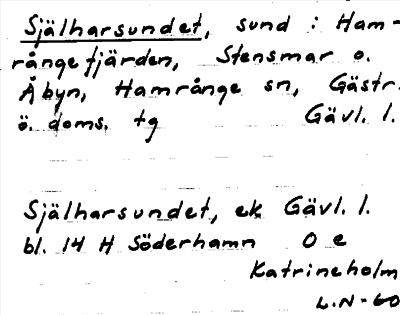 Själharsundet, sund : Ham-
rångefjärden, Stensmar o.
Åbyn, Hamrånge sn, Gästr.
ö. doms. tg Gävl. l.
Själharsundet, ek Gävl. l.
bl. 14 H Söderhamn O e
Katrineholm
L.N-60